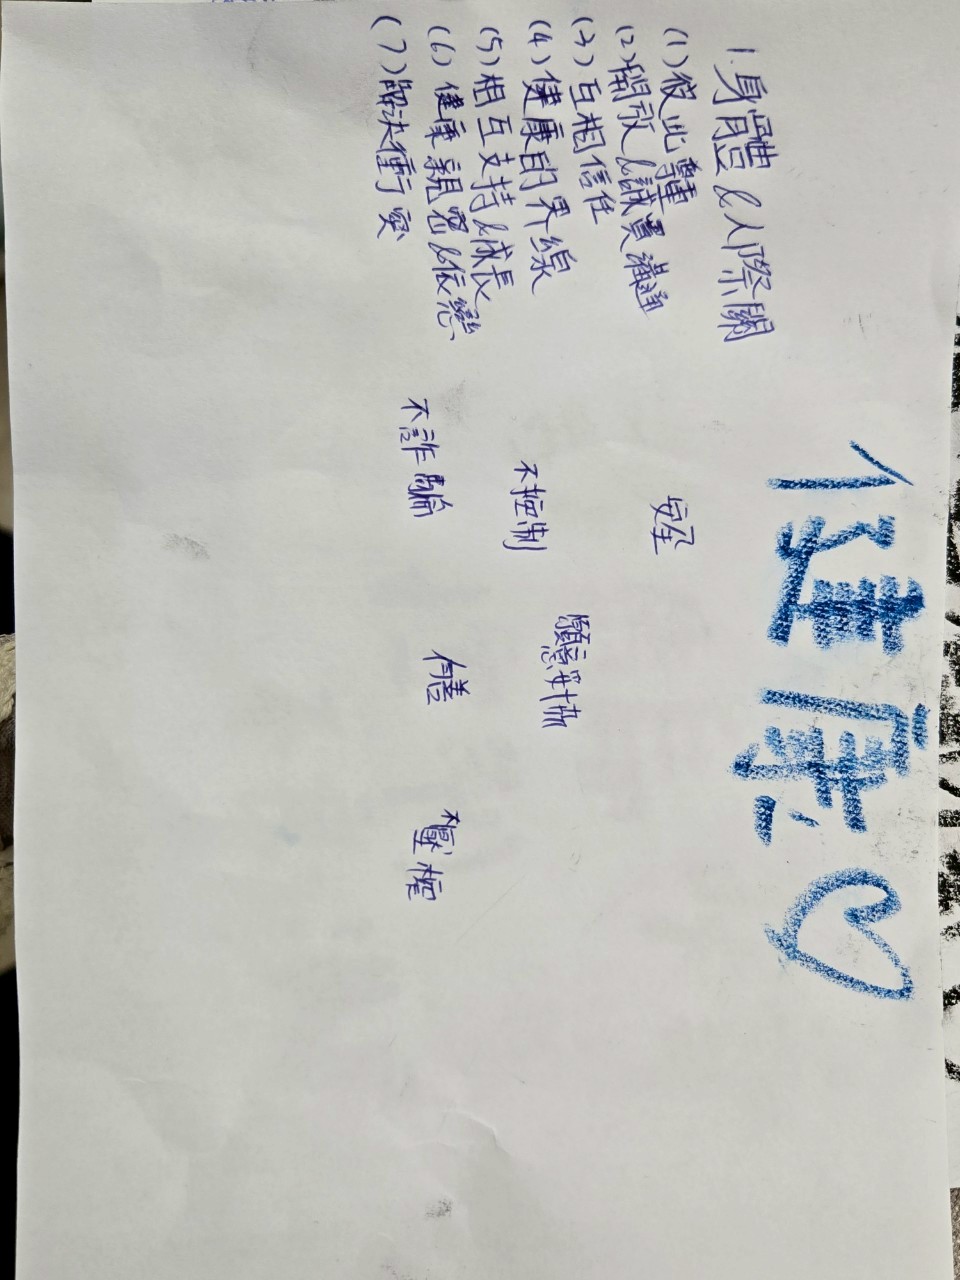 健康
1.身體&人際關
(1)彼此尊重
(2)開放&誠實溝通
(3)互相信任
(4)健康的界線
(5)相互支持&成長
(6)健康親密&依戀
(7)解決衝突
安全
不控制
願意妥協
不詐騙
友善
不壓榨